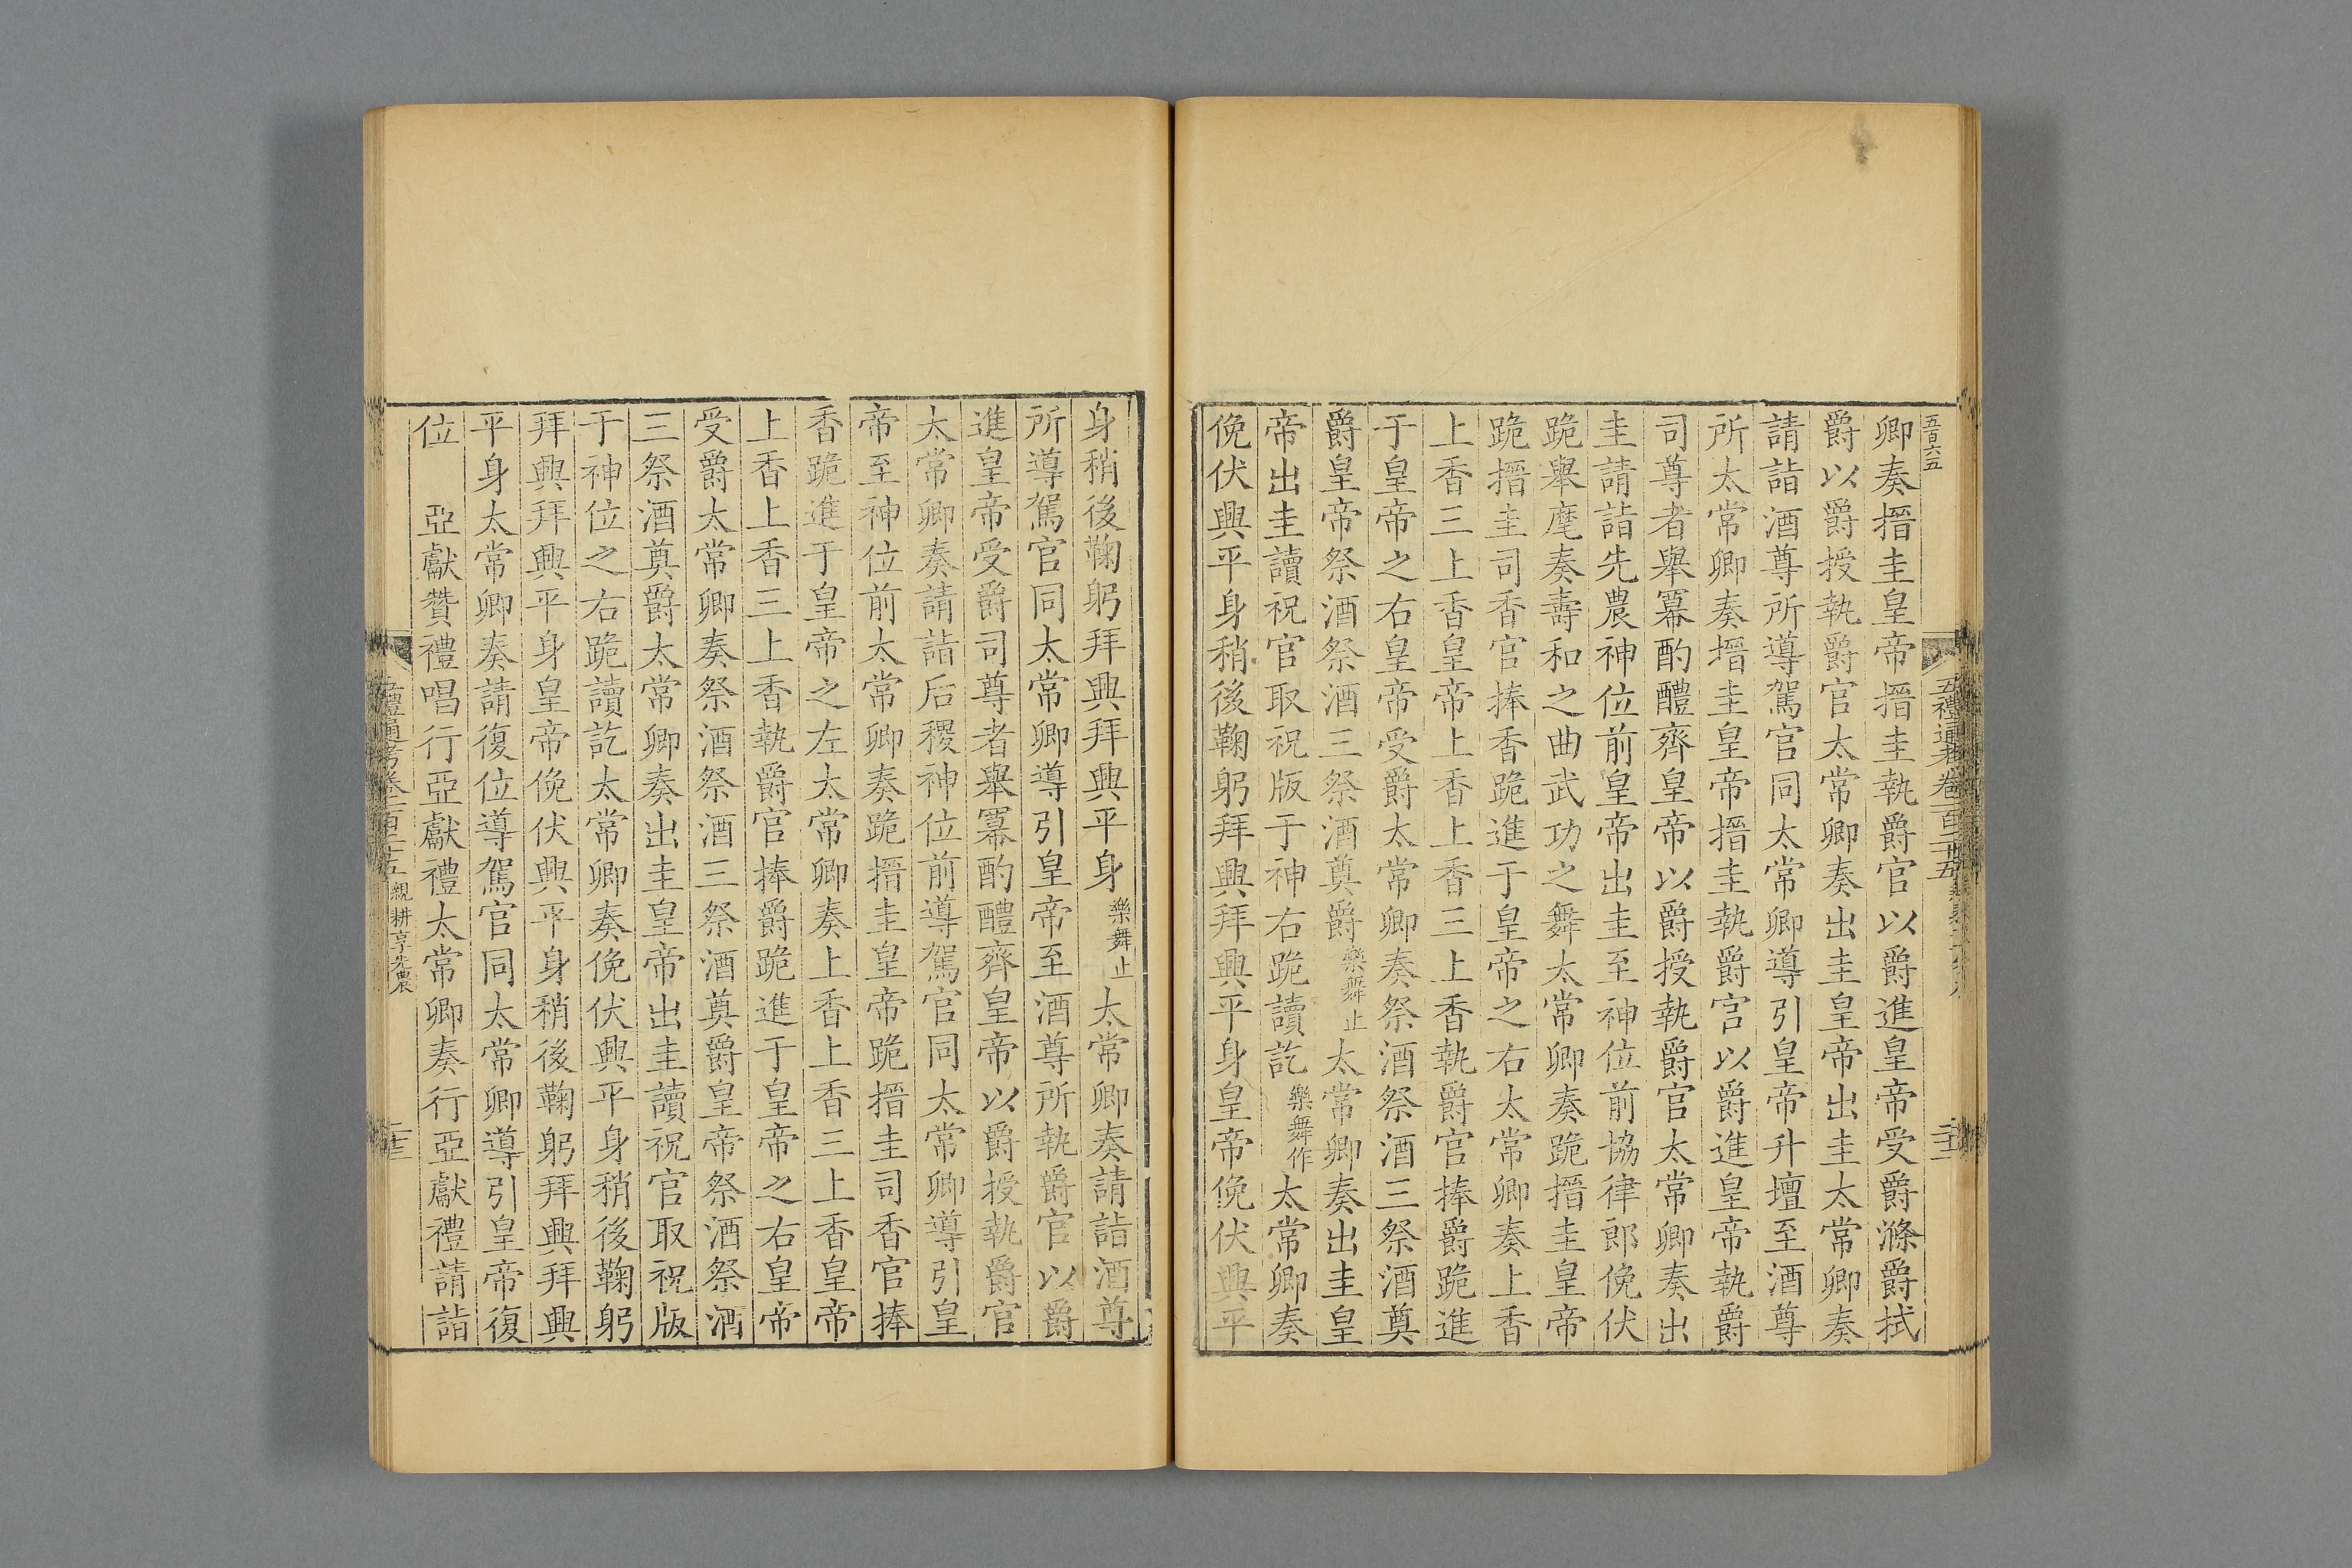 五百六五
五禮通考卷一百二十五
卿奏搢圭皇帝搢圭執爵官以爵進皇帝受爵滌爵拭
爵以爵授執爵官太常卿奏出圭皇帝出圭太常卿奏
請詣酒尊所導駕官同太常卿導引皇帝升壇至酒尊
所太常卿奏搢圭皇帝搢圭執爵官以爵進皇帝執爵
司尊者舉冪酌醴齊皇帝以爵授執爵官太常卿奏出
圭請詣先農神位前皇帝出圭至神位前協律郎俛伏
跪舉麾奏壽和之曲武功之舞太常卿奏跪搢圭皇帝
跪搢圭司香官捧香跪進于皇帝之右太常卿奏上香
上香三上香皇帝上香上香三上香執爵官捧爵跪進
于皇帝之右皇帝受爵太常卿奏祭酒祭酒三祭酒奠
爵皇帝祭酒祭酒三祭酒奠爵樂舞止太常卿奏出圭皇
帝出圭讀祝官取祝版于神右跪讀訖樂舞作太常卿奏
俛伏興平身稍後鞠躬拜興拜興平身皇帝俛伏興平
身稍後鞠躬拜興拜興平身樂舞止太常卿奏請詣酒尊
所導駕官同太常卿導引皇帝至酒尊所執爵官以爵
進皇帝受爵司尊者舉冪酌醴齊皇帝以爵授執爵官
太常卿奏請詣后稷神位前導駕官同太常卿導引皇
帝至神位前太常卿奏跪搢圭皇帝跪搢圭司香官捧
香跪進于皇帝之左太常卿奏上香上香三上香皇帝
上香上香三上香執爵官捧爵跪進于皇帝之右皇帝
受爵太常卿奏祭酒祭酒三祭酒奠爵皇帝祭酒祭酒
三祭酒奠爵太常卿奏出圭皇帝出圭讀祝官取祝版
于神位之右跪讀訖太常卿奏俛伏興平身稍後鞠躬
拜興拜興平身皇帝俛伏興平身稍後鞠躬拜興拜興
平身太常卿奏請復位導駕官同太常卿導引皇帝復
位　亞獻贊禮唱行亞獻禮太常卿奏行亞獻禮請詣
五禮通考卷一百二十五 親耕享先農